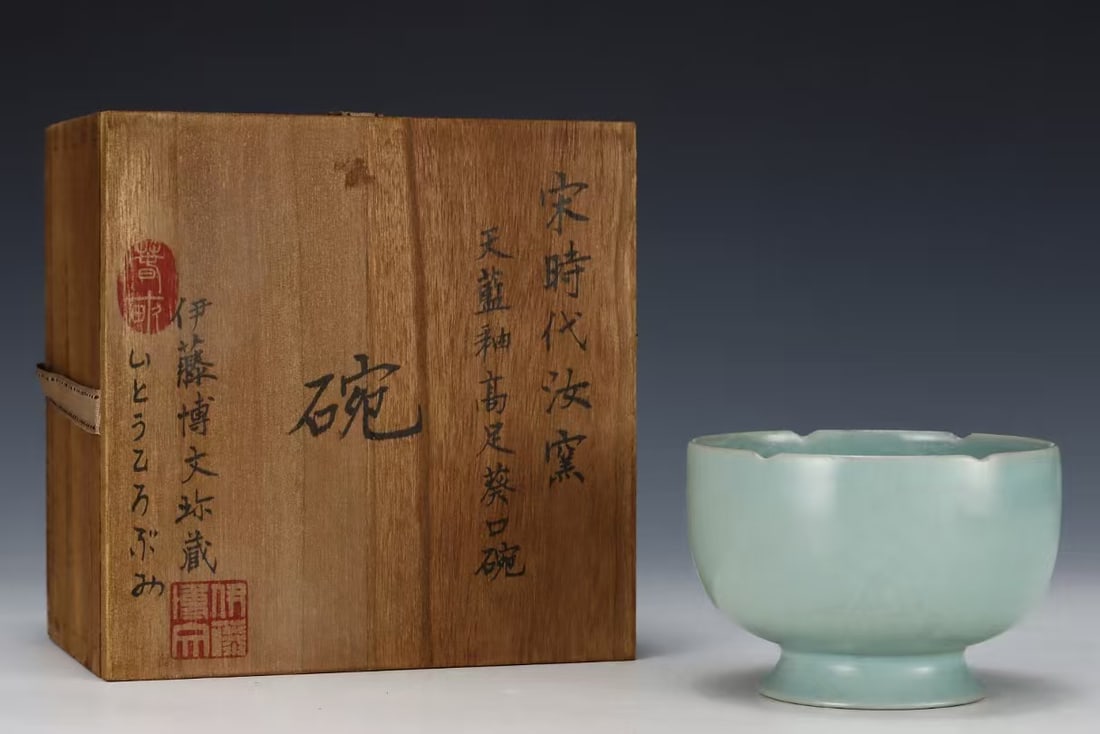 宋時代汝窯
天藍釉高足葵口碗
碗
伊藤博文珎蔵
いとうひろぶみ
春畝
伊藤博文